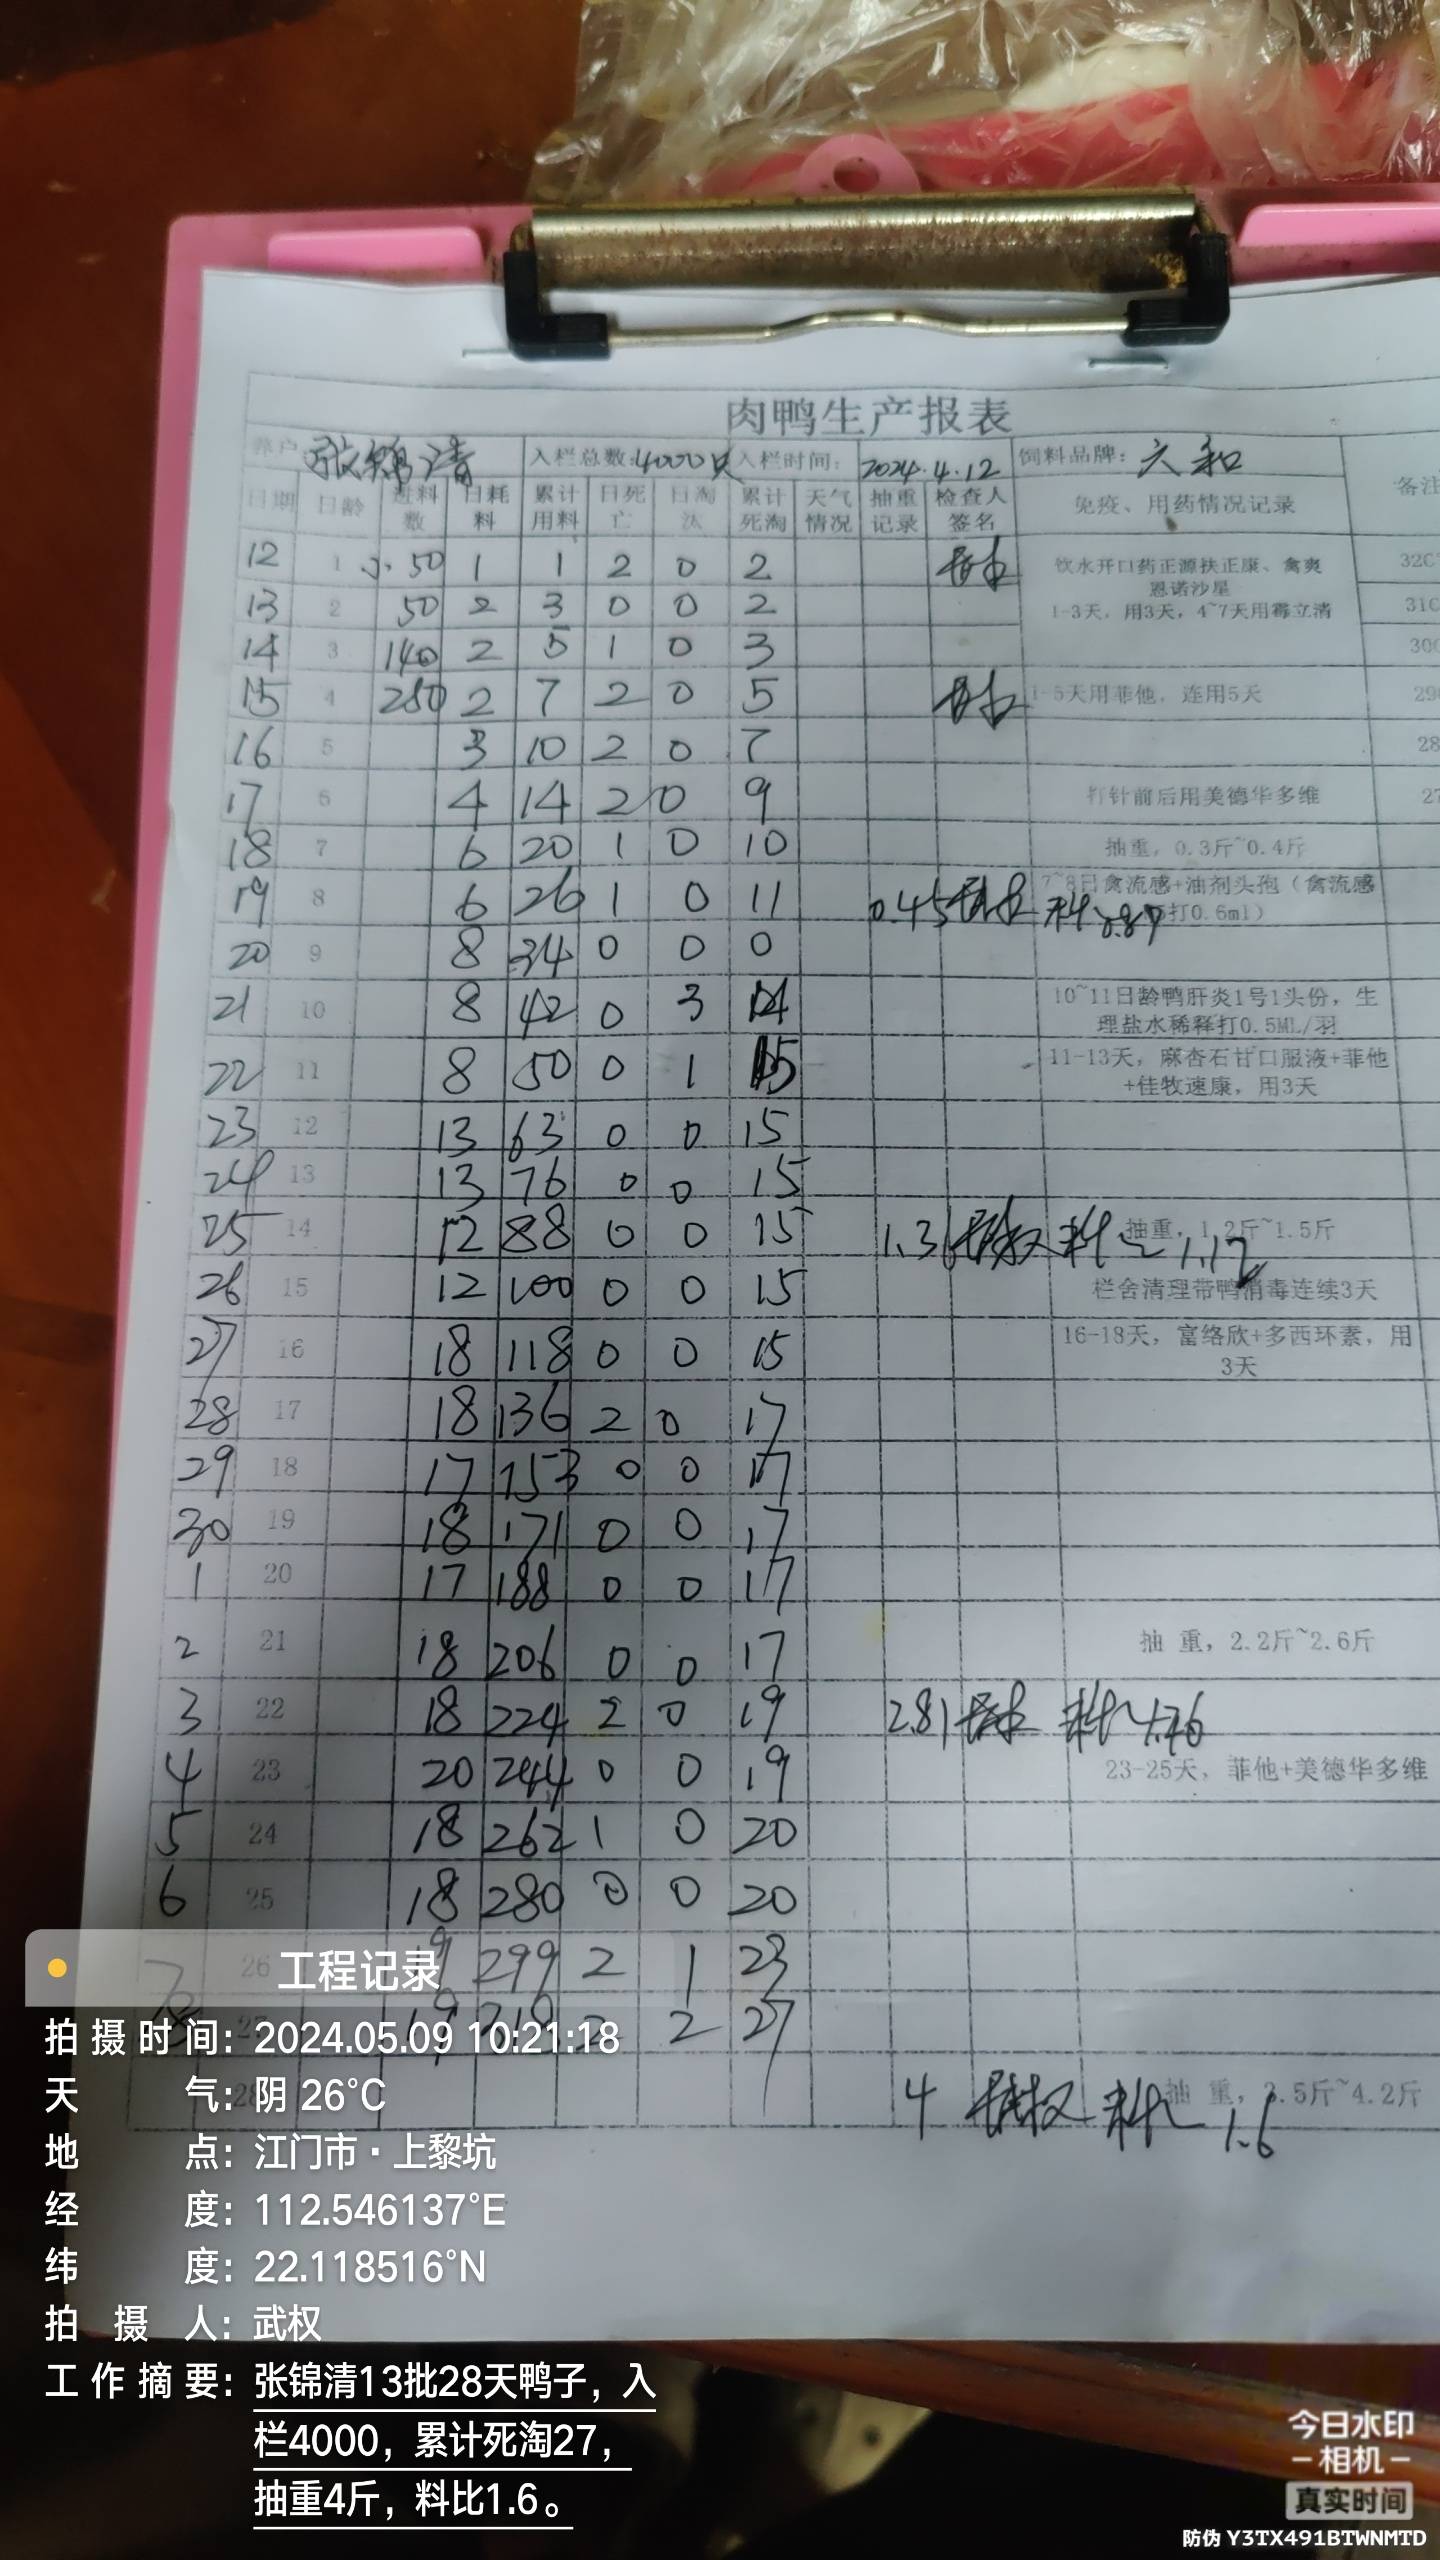 肉鸭生产报表
养户 张锦清 入栏总数:4000只 入栏时间: 2024.4.12 饲料品牌: 六和
日期 日龄 进料数 日耗料 累计用料 日死亡 日淘汰 累计死淘 天气情况 抽重记录 检查人签名 免疫、用药情况记录 备注
12 1 50 1 1 2 0 2 饮水开口药正源扶正康、禽爽 32C
恩诺沙星
13 2 50 2 3 0 0 2 1-3天,用3天,4~7天用霉立清 31C
14 3 140 2 5 1 0 3 300
15 4 280 2 7 2 0 5 1-5天用菲他,连用5天 29
16 5 3 10 2 0 7 28
17 6 4 14 2 0 9 打针前后用美德华多维 27
18 7 6 20 1 0 10 抽重,0.3斤~0.4斤
19 8 6 26 1 0 11 0.45 7~8日禽流感+油剂头孢(禽流感
料 0.87 打0.6ml)
20 9 8 34 0 0 0
21 10 8 42 0 3 14 10~11日龄鸭肝炎1号1头份,生
理盐水稀释打0.5ML/羽
22 11 8 50 0 1 15 11-13天,麻杏石甘口服液+菲他
+佳牧速康,用3天
23 12 13 63 0 0 15
24 13 13 76 0 0 15
25 14 12 88 0 0 15 1.31 武权 料比1.12 抽重,1.2斤~1.5斤
26 15 12 100 0 0 15 栏舍清理带鸭消毒连续3天
27 16 18 118 0 0 15 16-18天,富络欣+多西环素,用
3天
28 17 18 136 2 0 17
29 18 17 153 0 0 17
30 19 18 171 0 0 17
1 20 17 188 0 0 17
2 21 18 206 0 0 17 抽 重,2.2斤~2.6斤
3 22 18 224 2 0 19 2.81 料比
4 23 20 244 0 0 19 23-25天,菲他+美德华多维
5 24 18 262 1 0 20
6 25 18 280 0 0 20
7 26 19 299 2 1 23
8 27 19 2 2 27
28 4 武权 料比 1.6 抽 重,3.5斤~4.2斤
工程记录
拍摄时间: 2024.05.09 10:21:18
天气: 阴 26°C
地点: 江门市·上黎坑
经度: 112.546137°E
纬度: 22.118516°N
拍摄人: 武权
工作摘要: 张锦清13批28天鸭子,入
栏4000,累计死淘27,
抽重4斤,料比1.6。
今日水印
-相机-
真实时间
防伪 Y3TX491BTWNMTD